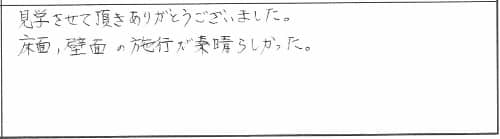 見学させて頂きありがとうございました。
床面,壁面の施行が素晴らしかった。